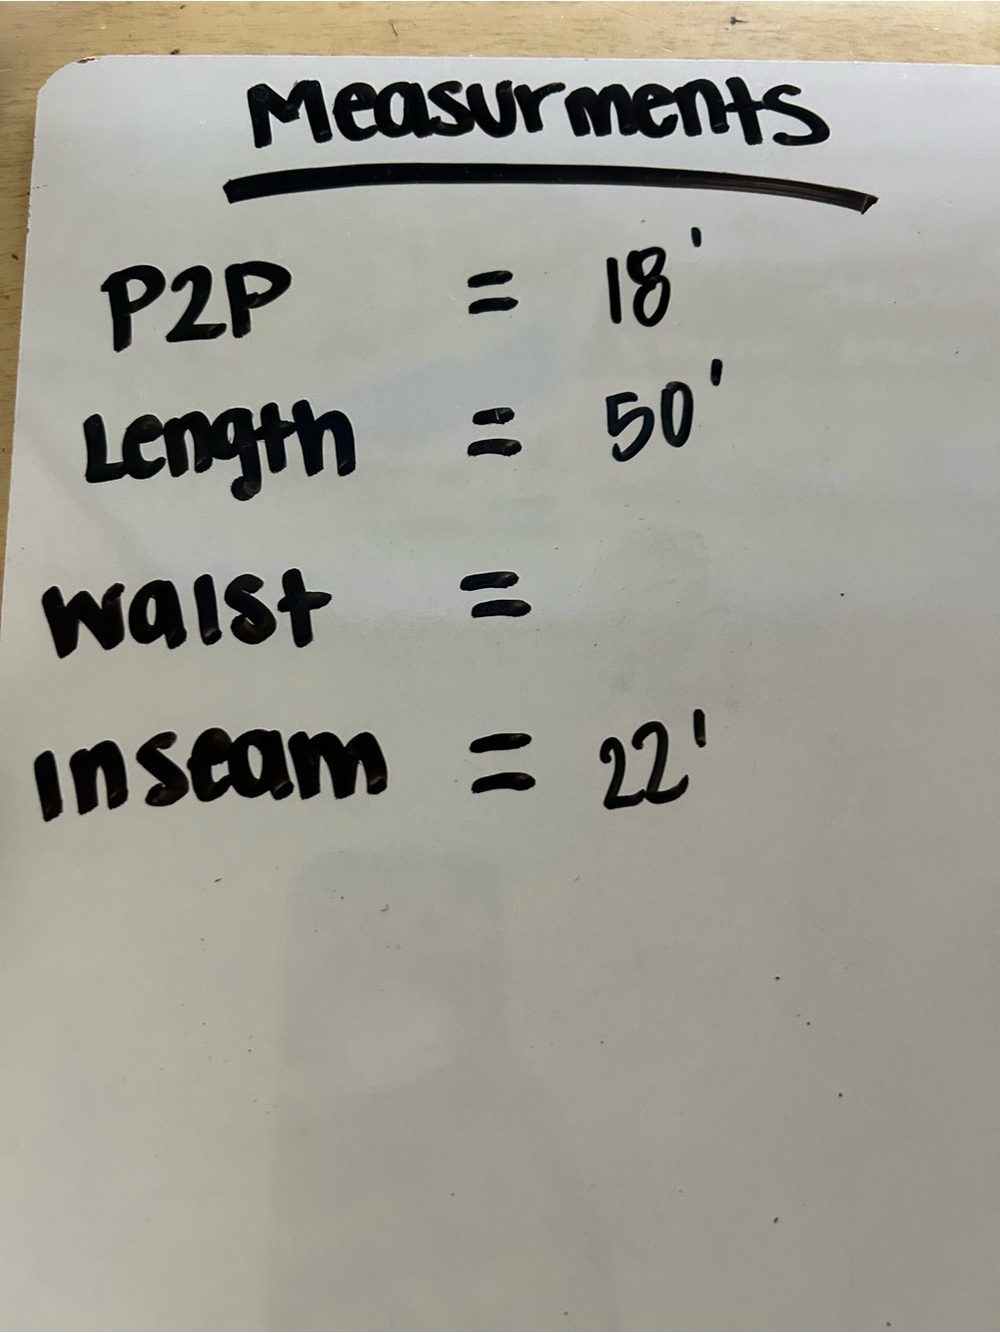 Measurments
P2P = 18'
Length = 50'
Waist =
Inseam = 22'